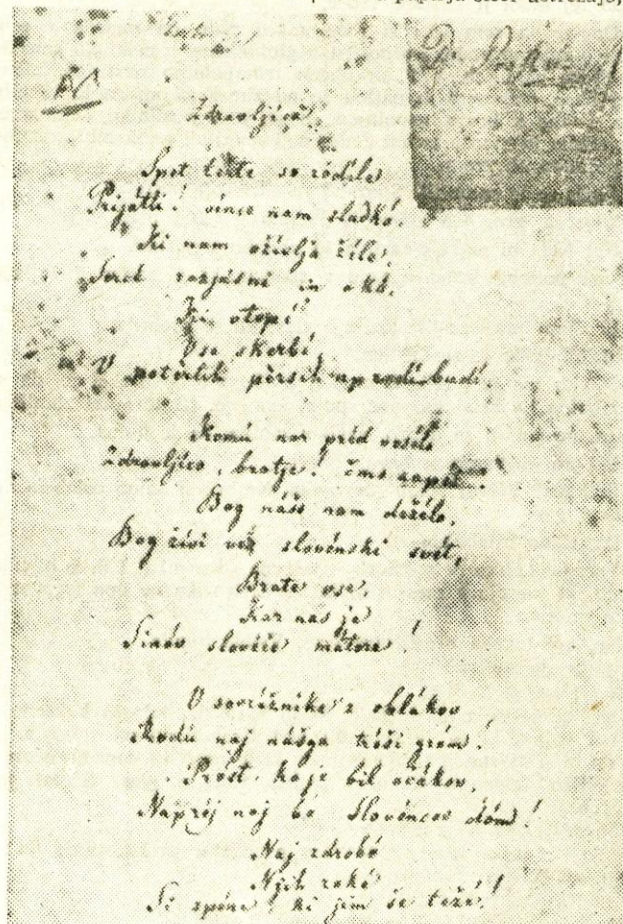 Zdravljica.
Spet tèrte so ródile
Prijátli! vince nam sladkó,
Ki nam oživlja žile,
Sercé razjásni in okó,
Ki otopí
Vse skerbí,
V potèrtih pèrsih up rodí budí.
Komú nar préd veselo
Zdravljico, bratje! čmo
Bog nášo nam deželo,
Bog živi ves slovénski svét,
Brate vse,
Kar nas je
Sinóv slovéče mátere!
V sovrážnike z oblákov
Rodú naj nášga tréši gróm!
Prost, ko je bil očákov,
Naprèj naj bo Slovéncov dóm!
Naj zdrobé
Njih roké
Si spóne, ki jim še težé!